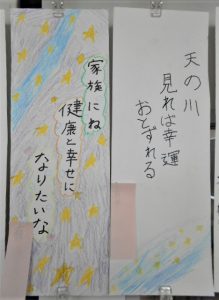 天の川
見れば幸運
おとずれる
家族にね
健康と幸せに
なりたいな